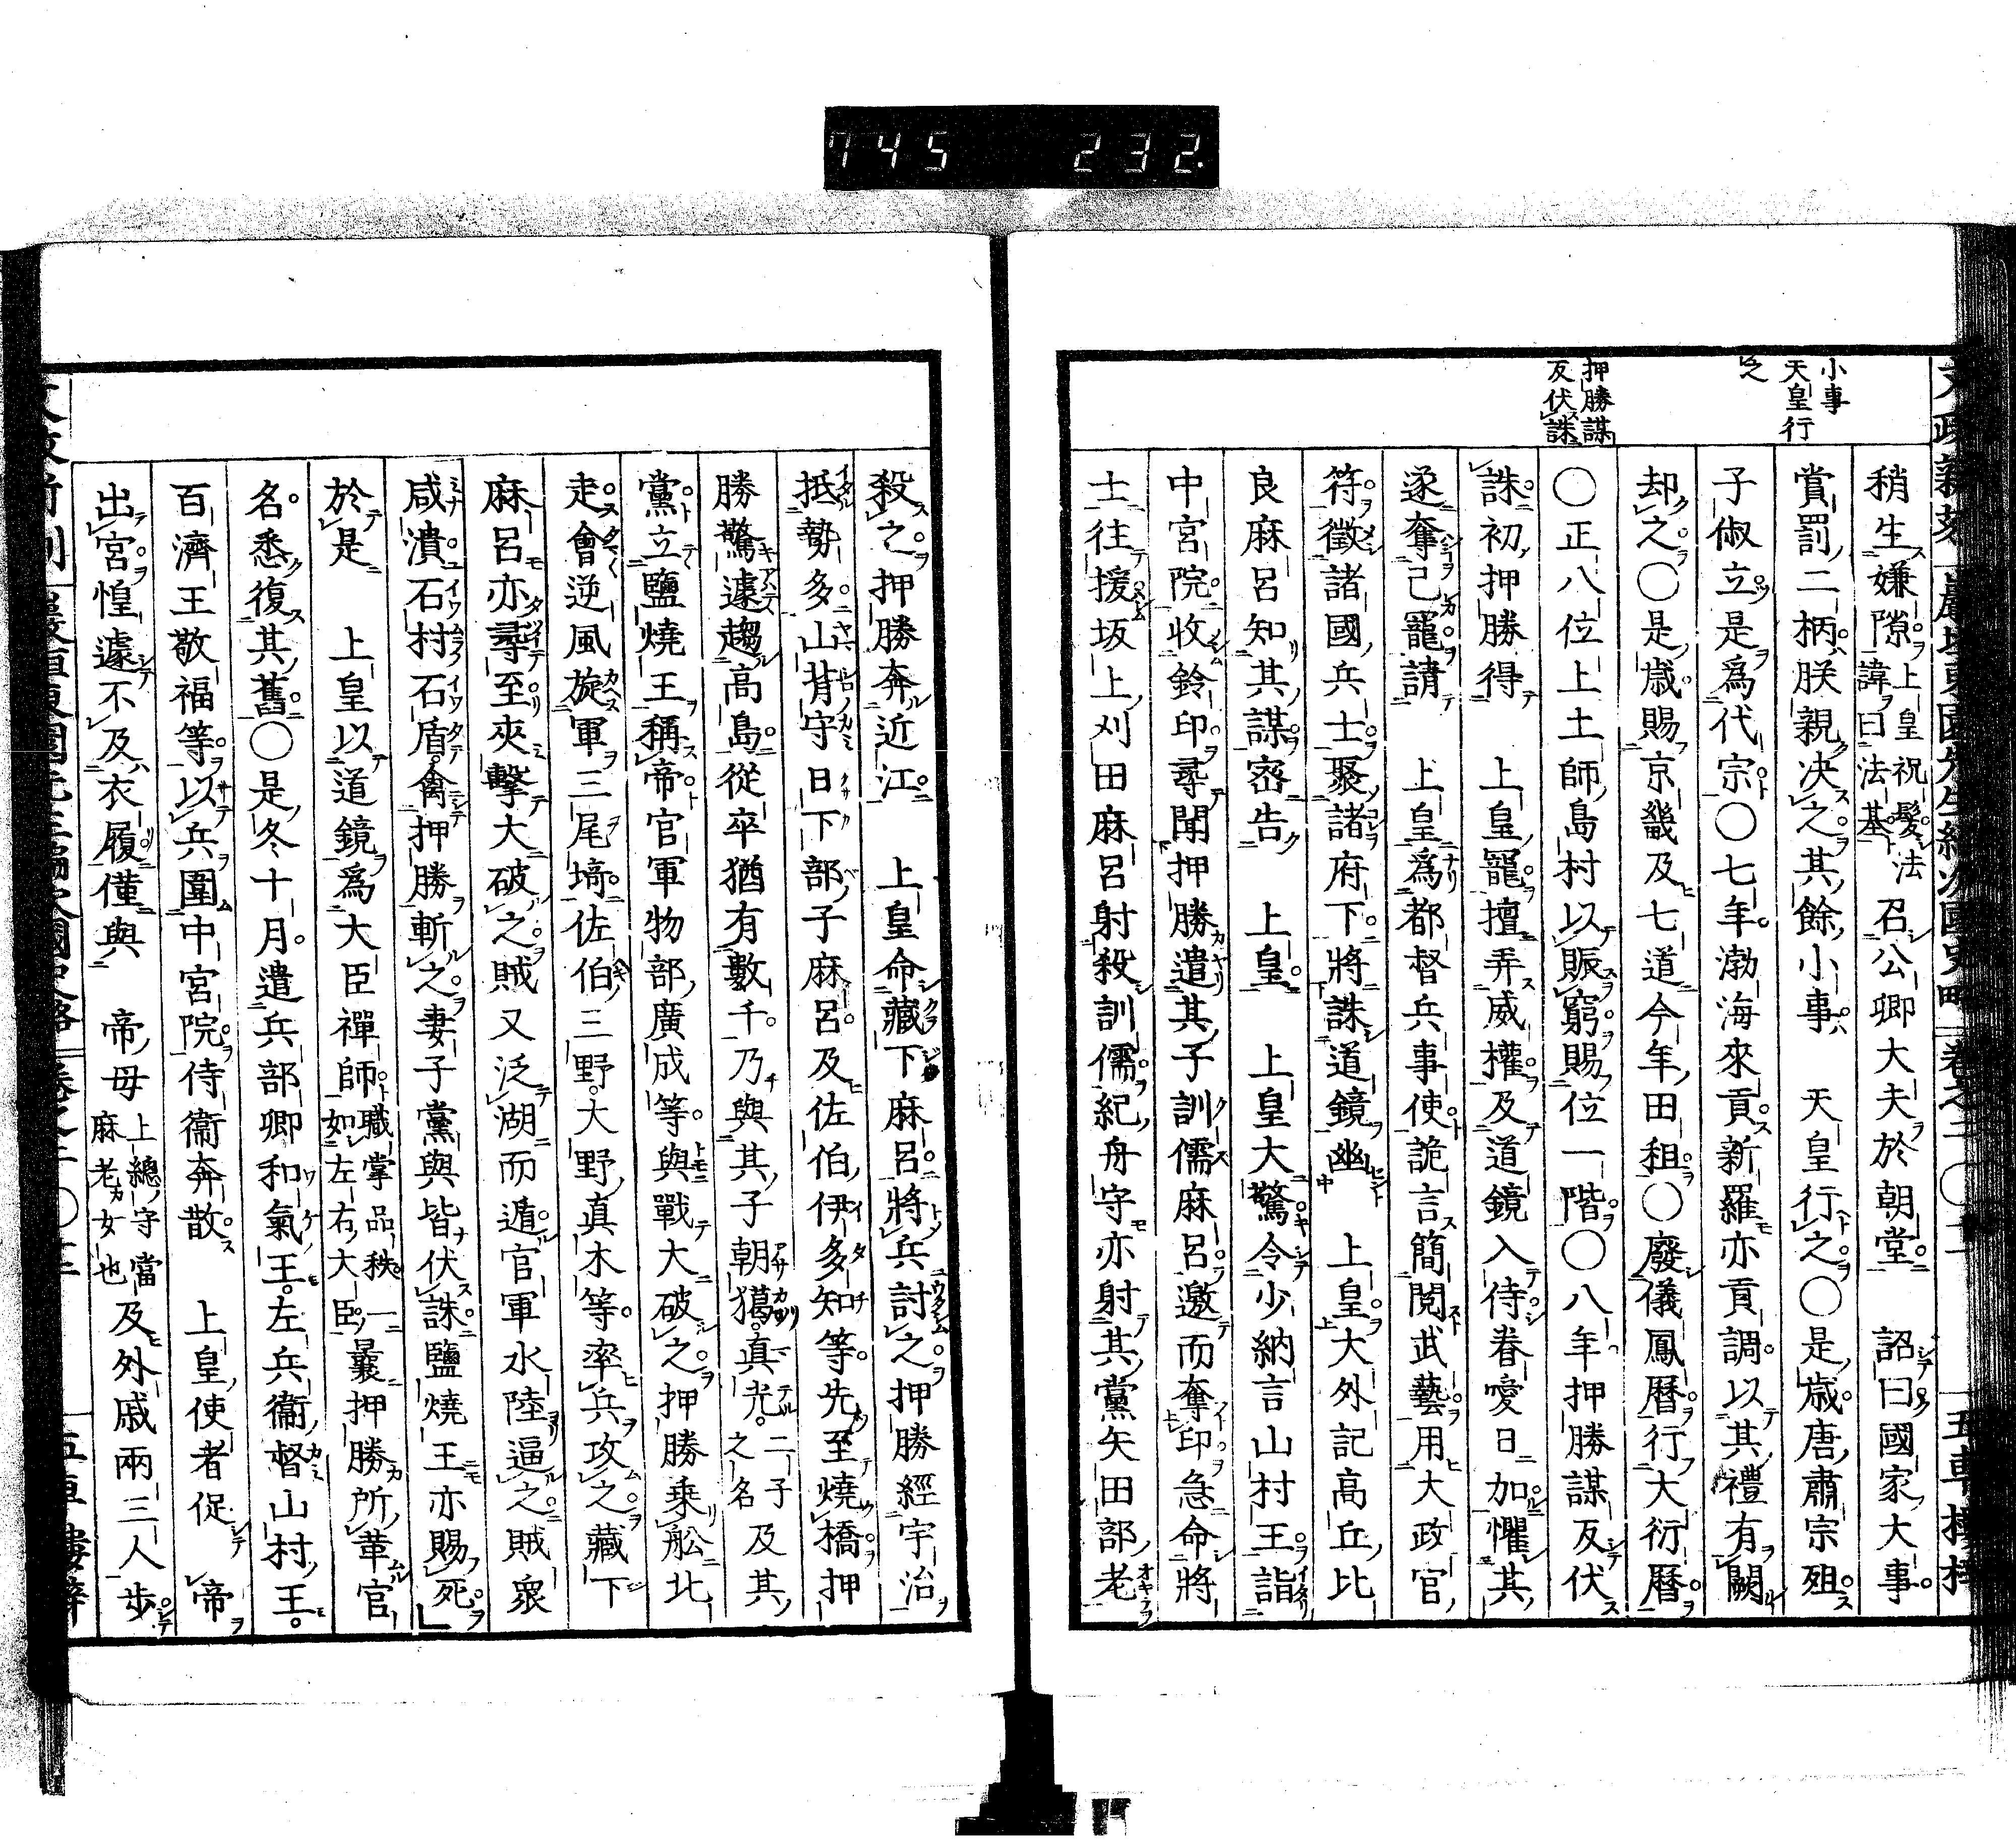 745 232.
小事
天皇行
之
押勝謀
反伏誅
稍生嫌隙上皇祝髮法諱曰法基召公卿大夫於朝堂 詔曰國家大事
賞罰二柄朕親决之其餘小事 天皇行之〇是歳唐肅宗殂
子俶立是爲代宗〇七年渤海來貢新羅亦貢調以其禮有闕
却之〇是歳賜京畿及七道今年田租〇廢儀鳳曆行大衍曆
〇正八位上土師島村以賑窮賜位一階〇八年押勝謀反伏
誅初押勝得 上皇寵擅弄威權及道鏡入侍眷愛日加懼其
逐奪己寵請 上皇爲都督兵事使詭言簡閲武藝用大政官
符徵諸國兵士聚諸府下將誅道鏡幽 上皇大外記高丘比
良麻呂知其謀密告 上皇 上皇大驚令少納言山村王詣
中宮院收鈴印尋聞押勝遣其子訓儒麻呂邀而奪印急命將
士往援坂上刈田麻呂射殺訓儒紀舟守亦射其黨矢田部老
殺之押勝奔近江 上皇命藏下麻呂將兵討之押勝經宇治
抵勢多山背守日下部子麻呂及佐伯伊多知等先至燒橋押
勝驚遽趨高島從卒猶有數千乃與其子朝獦真光二子之名及其
黨立鹽燒王稱帝官軍物部廣成等與戰大破之押勝乗舩北
走會逆風旋軍三尾埼佐伯三野大野真木等率兵攻之藏下
麻呂亦尋至夾擊大破之賊又泛湖而遁官軍水陸逼之賊衆
咸潰石村石盾禽押勝斬之妻子黨與皆伏誅鹽燒王亦賜死
於是 上皇以道鏡爲大臣禪師職掌品秩一如左右大臣曩押勝所革官
名悉復其舊〇是冬十月遣兵部卿和氣王左兵衞督山村王
百濟王敬福等以兵圍中宮院侍衞奔散 上皇使者促 帝
出宮惶遽不及衣履僅與 帝母上總守當麻老女也及外戚兩三人步